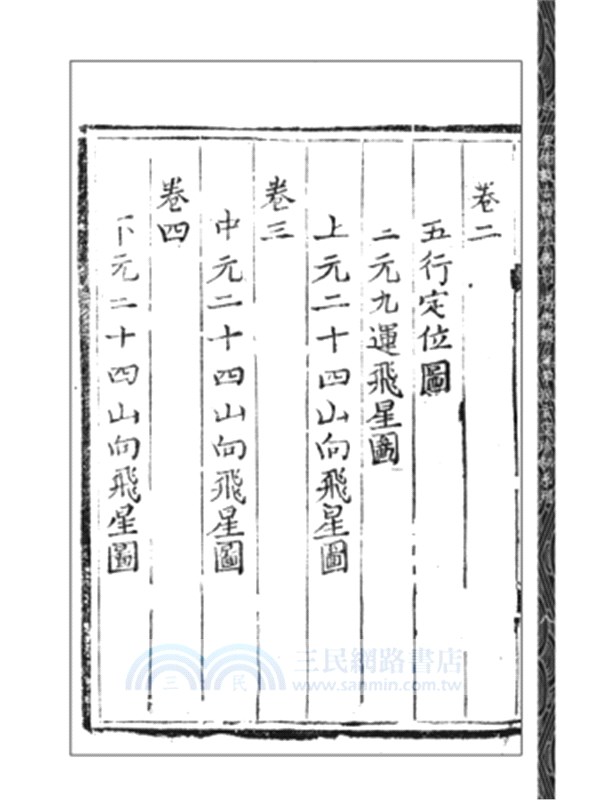 卷二
五行定位圖
二元九運飛星圖
上元二十四山向飛星圖
卷三
中元二十四山向飛星圖
卷四
下元二十四山向飛星圖
三民網路書店
www.sanmin.com.tw
三
民